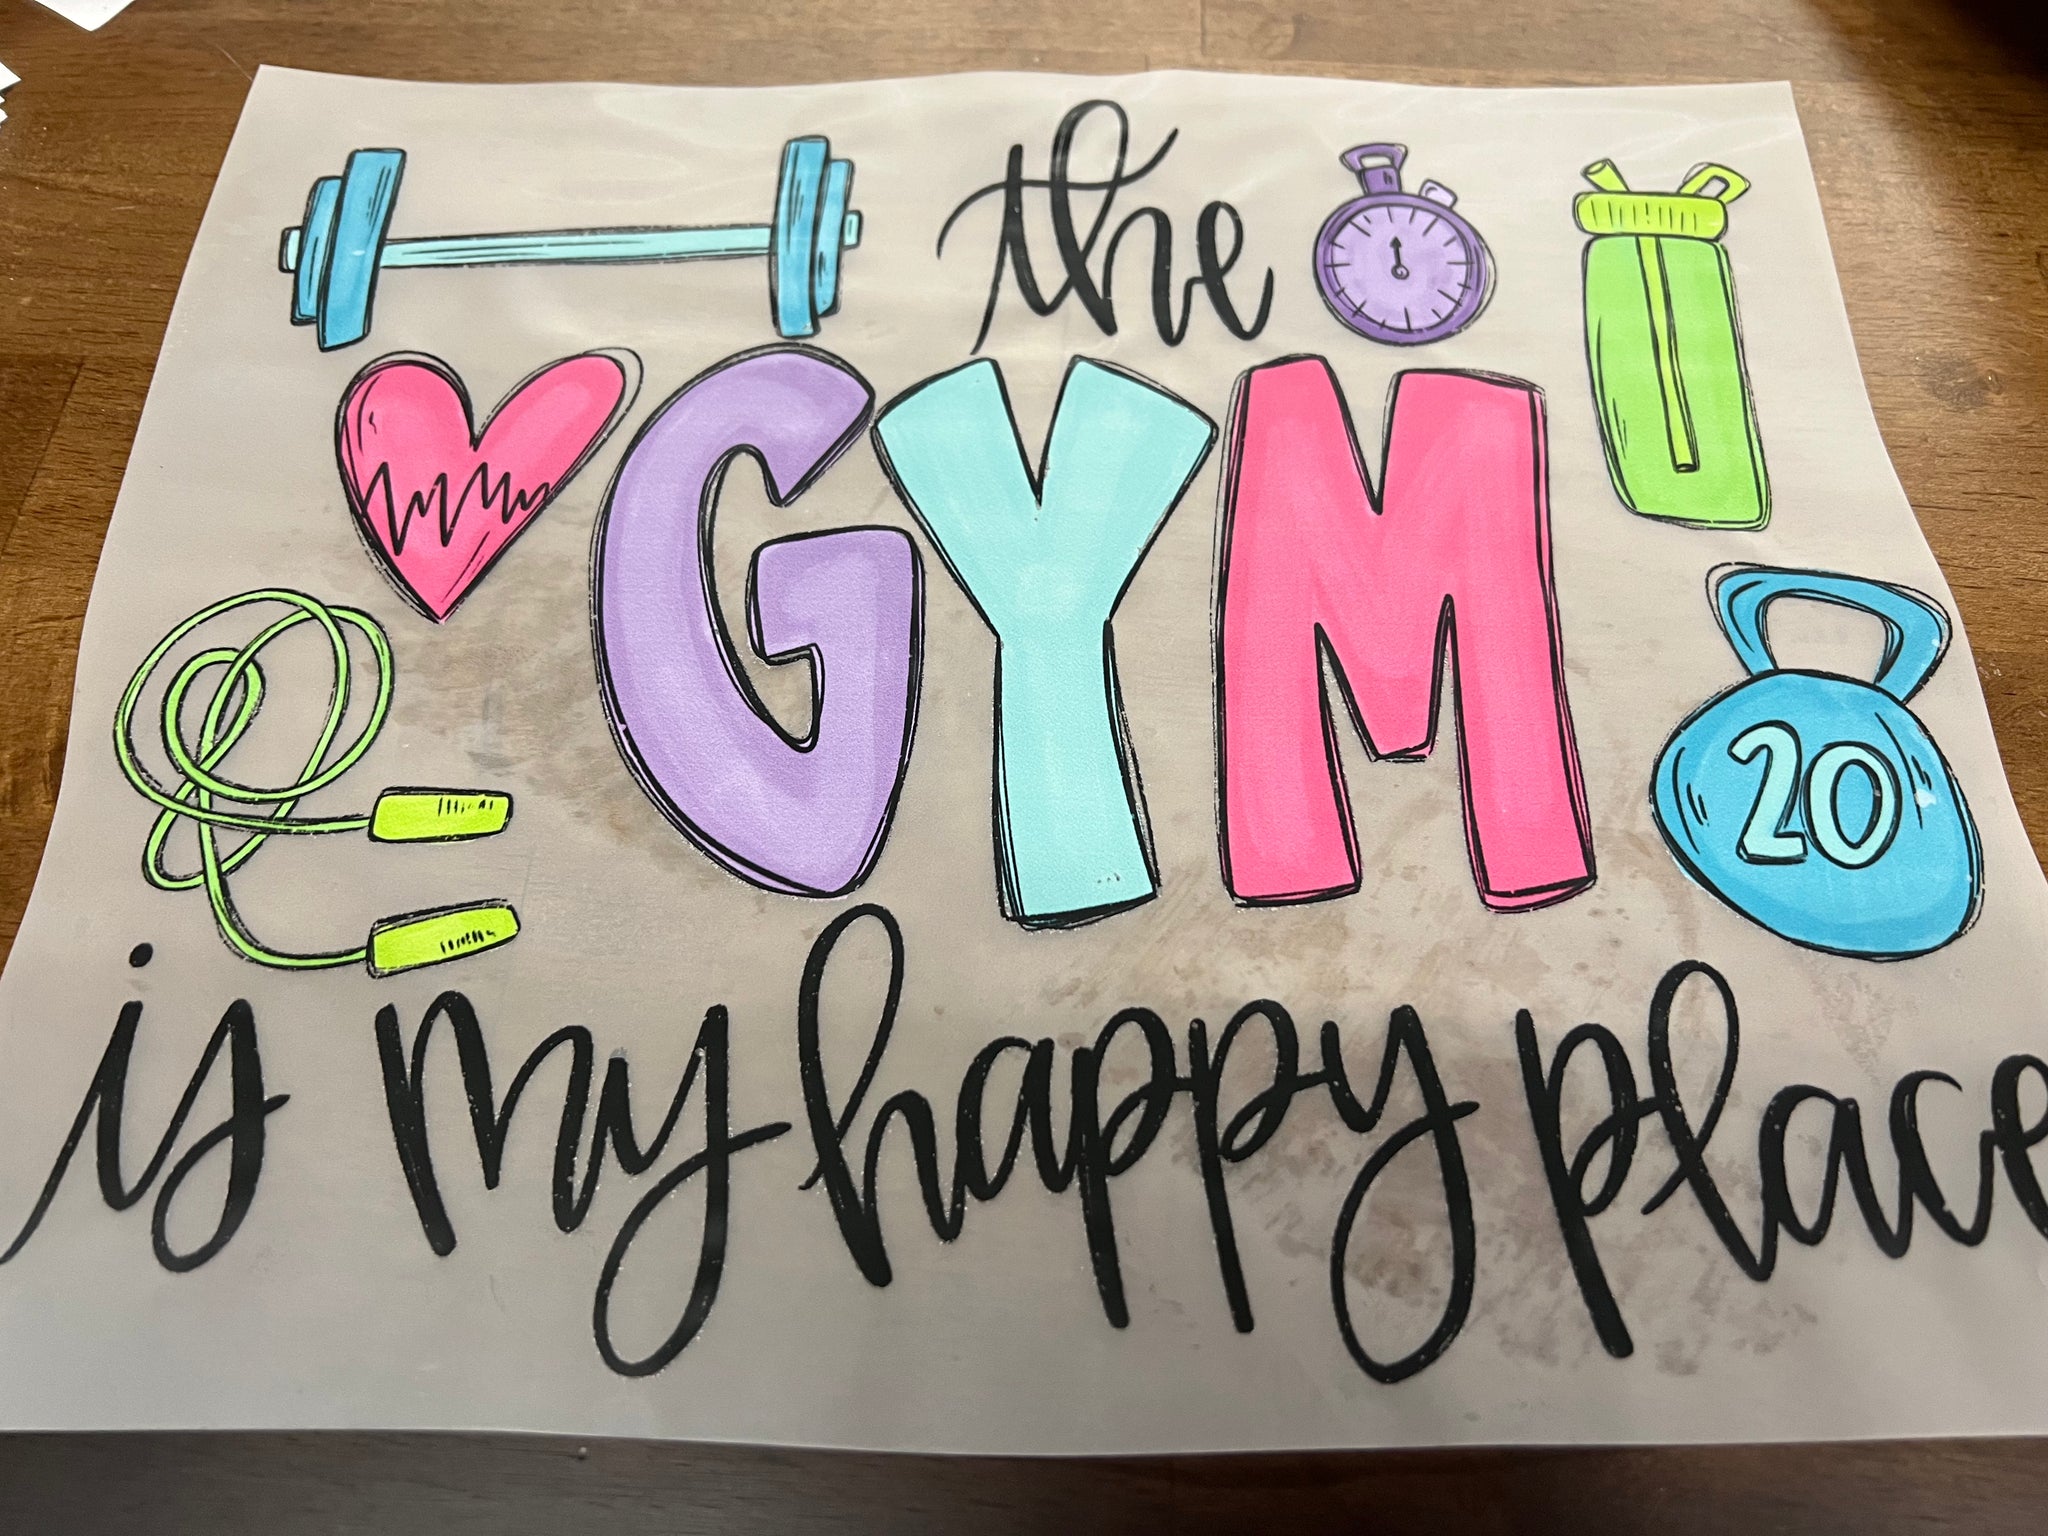 the
GYM
20
is my happy place